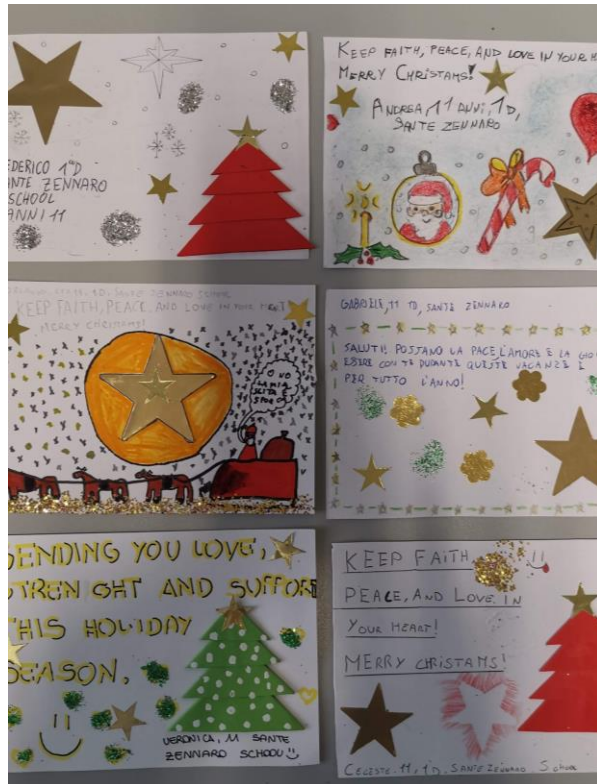 EDERICO 1°D
SANTE ZENNARO
SCHOOL
ANNI 11
KEEP FAITH, PEACE, AND LOVE IN YOUR H
MERRY CHRISTAMS!
ANDREA, 11 ANNI, 1D,
SANTE ZENNARO
11, 1D, SANTE ZENNARO SCHOOL
KEEP FAITH, PEACE, AND LOVE IN YOUR
MERRY CHRISTAMS!
O NO
LA MIA
GABRIELE, 11 1D, SANTE ZENNARO
SALUTI! POSSANO LA PACE L'AMORE E LA GIO
ESSERE CON TE DURANTE QUESTE VACANZE E
PER TUTTO L'ANNO!
SENDING YOU LOVE,
STRENGHT AND SUPPORT
THIS HOLIDAY
SEASON,
VERONICA, 11 SANTE
ZENNARO SCHOOL
KEEP FAITH,
PEACE, AND LOVE IN
YOUR HEART!
MERRY CHRISTAMS!
CELESTE, 11, 1D, SANTE ZENNARO School